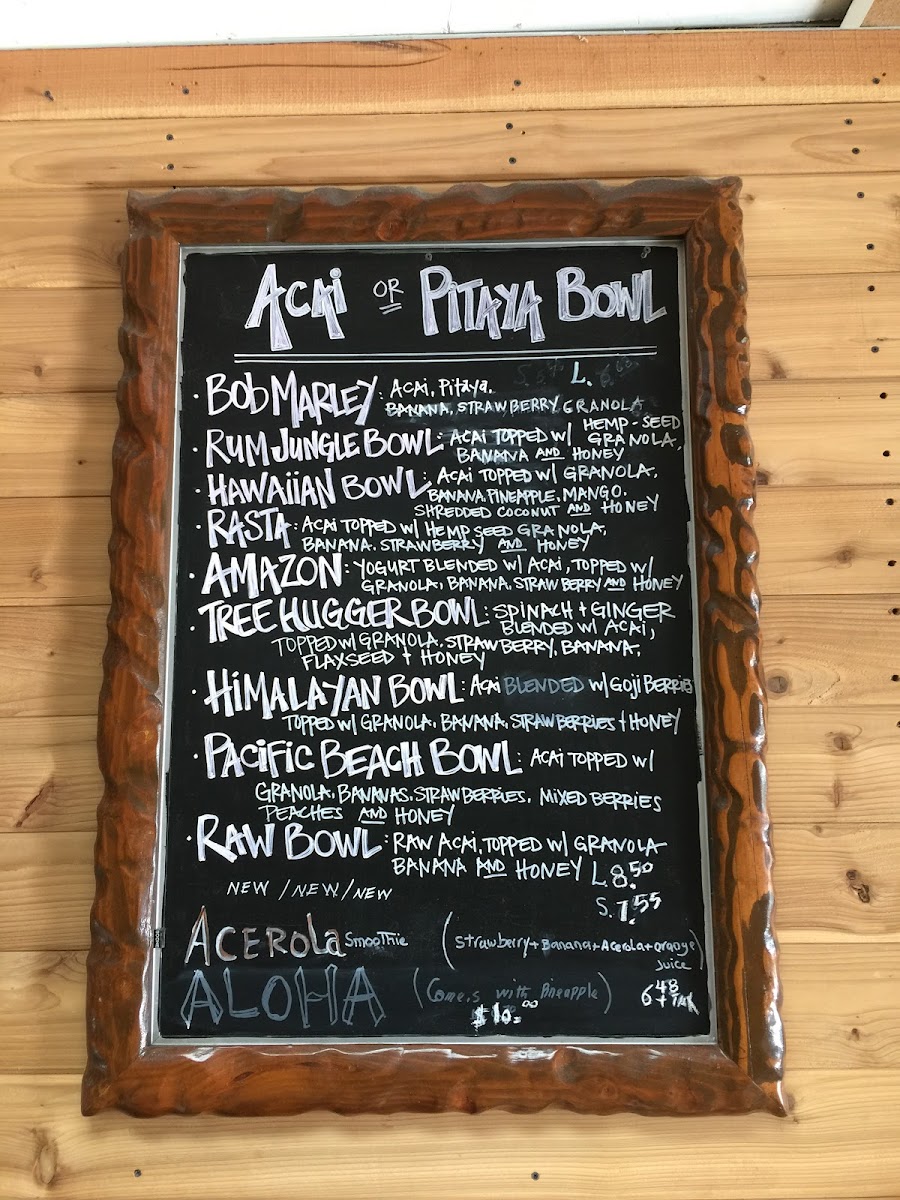 ACAI OR PITAYA BOWL
L.
· BOB MARLEY: ACAI, PITAYA,
BANANA, STRAWBERRY GRANOLA
· RUM JUNGLE BOWL: ACAI TOPPED W/ HEMP-SEED GRANOLA,
BANANA AND HONEY
· HAWAIIAN BOWL: ACAI TOPPED W/ GRANOLA,
BANANA, PINEAPPLE, MANGO,
SHREDDED COCONUT AND HONEY
· RASTA: ACAI TOPPED W/ HEMP SEED GRANOLA,
BANANA, STRAWBERRY AND HONEY
· AMAZON: YOGURT BLENDED W/ ACAI, TOPPED W/
GRANOLA, BANANA, STRAWBERRY AND HONEY
· TREE HUGGER BOWL: SPINACH + GINGER
BLENDED W/ ACAI,
TOPPED W/ GRANOLA, STRAWBERRY, BANANA,
FLAXSEED + HONEY
· HIMALAYAN BOWL: ACAI BLENDED W/ GOJI BERRIES
TOPPED W/ GRANOLA, BANANA, STRAWBERRIES + HONEY
· PACIFIC BEACH BOWL: ACAI TOPPED W/
GRANOLA, BANANAS, STRAWBERRIES, MIXED BERRIES
PEACHES AND HONEY
· RAW BOWL: RAW ACAI, TOPPED W/ GRANOLA
BANANA AND HONEY L 8.50
NEW / NEW / NEW
S. 7.55
ACEROLA SMOOTHIE (Strawberry + Banana + Acerola + orange
Juice
ALOHA (Comes with Pineapple) 6 48
+ TAX
$10.00